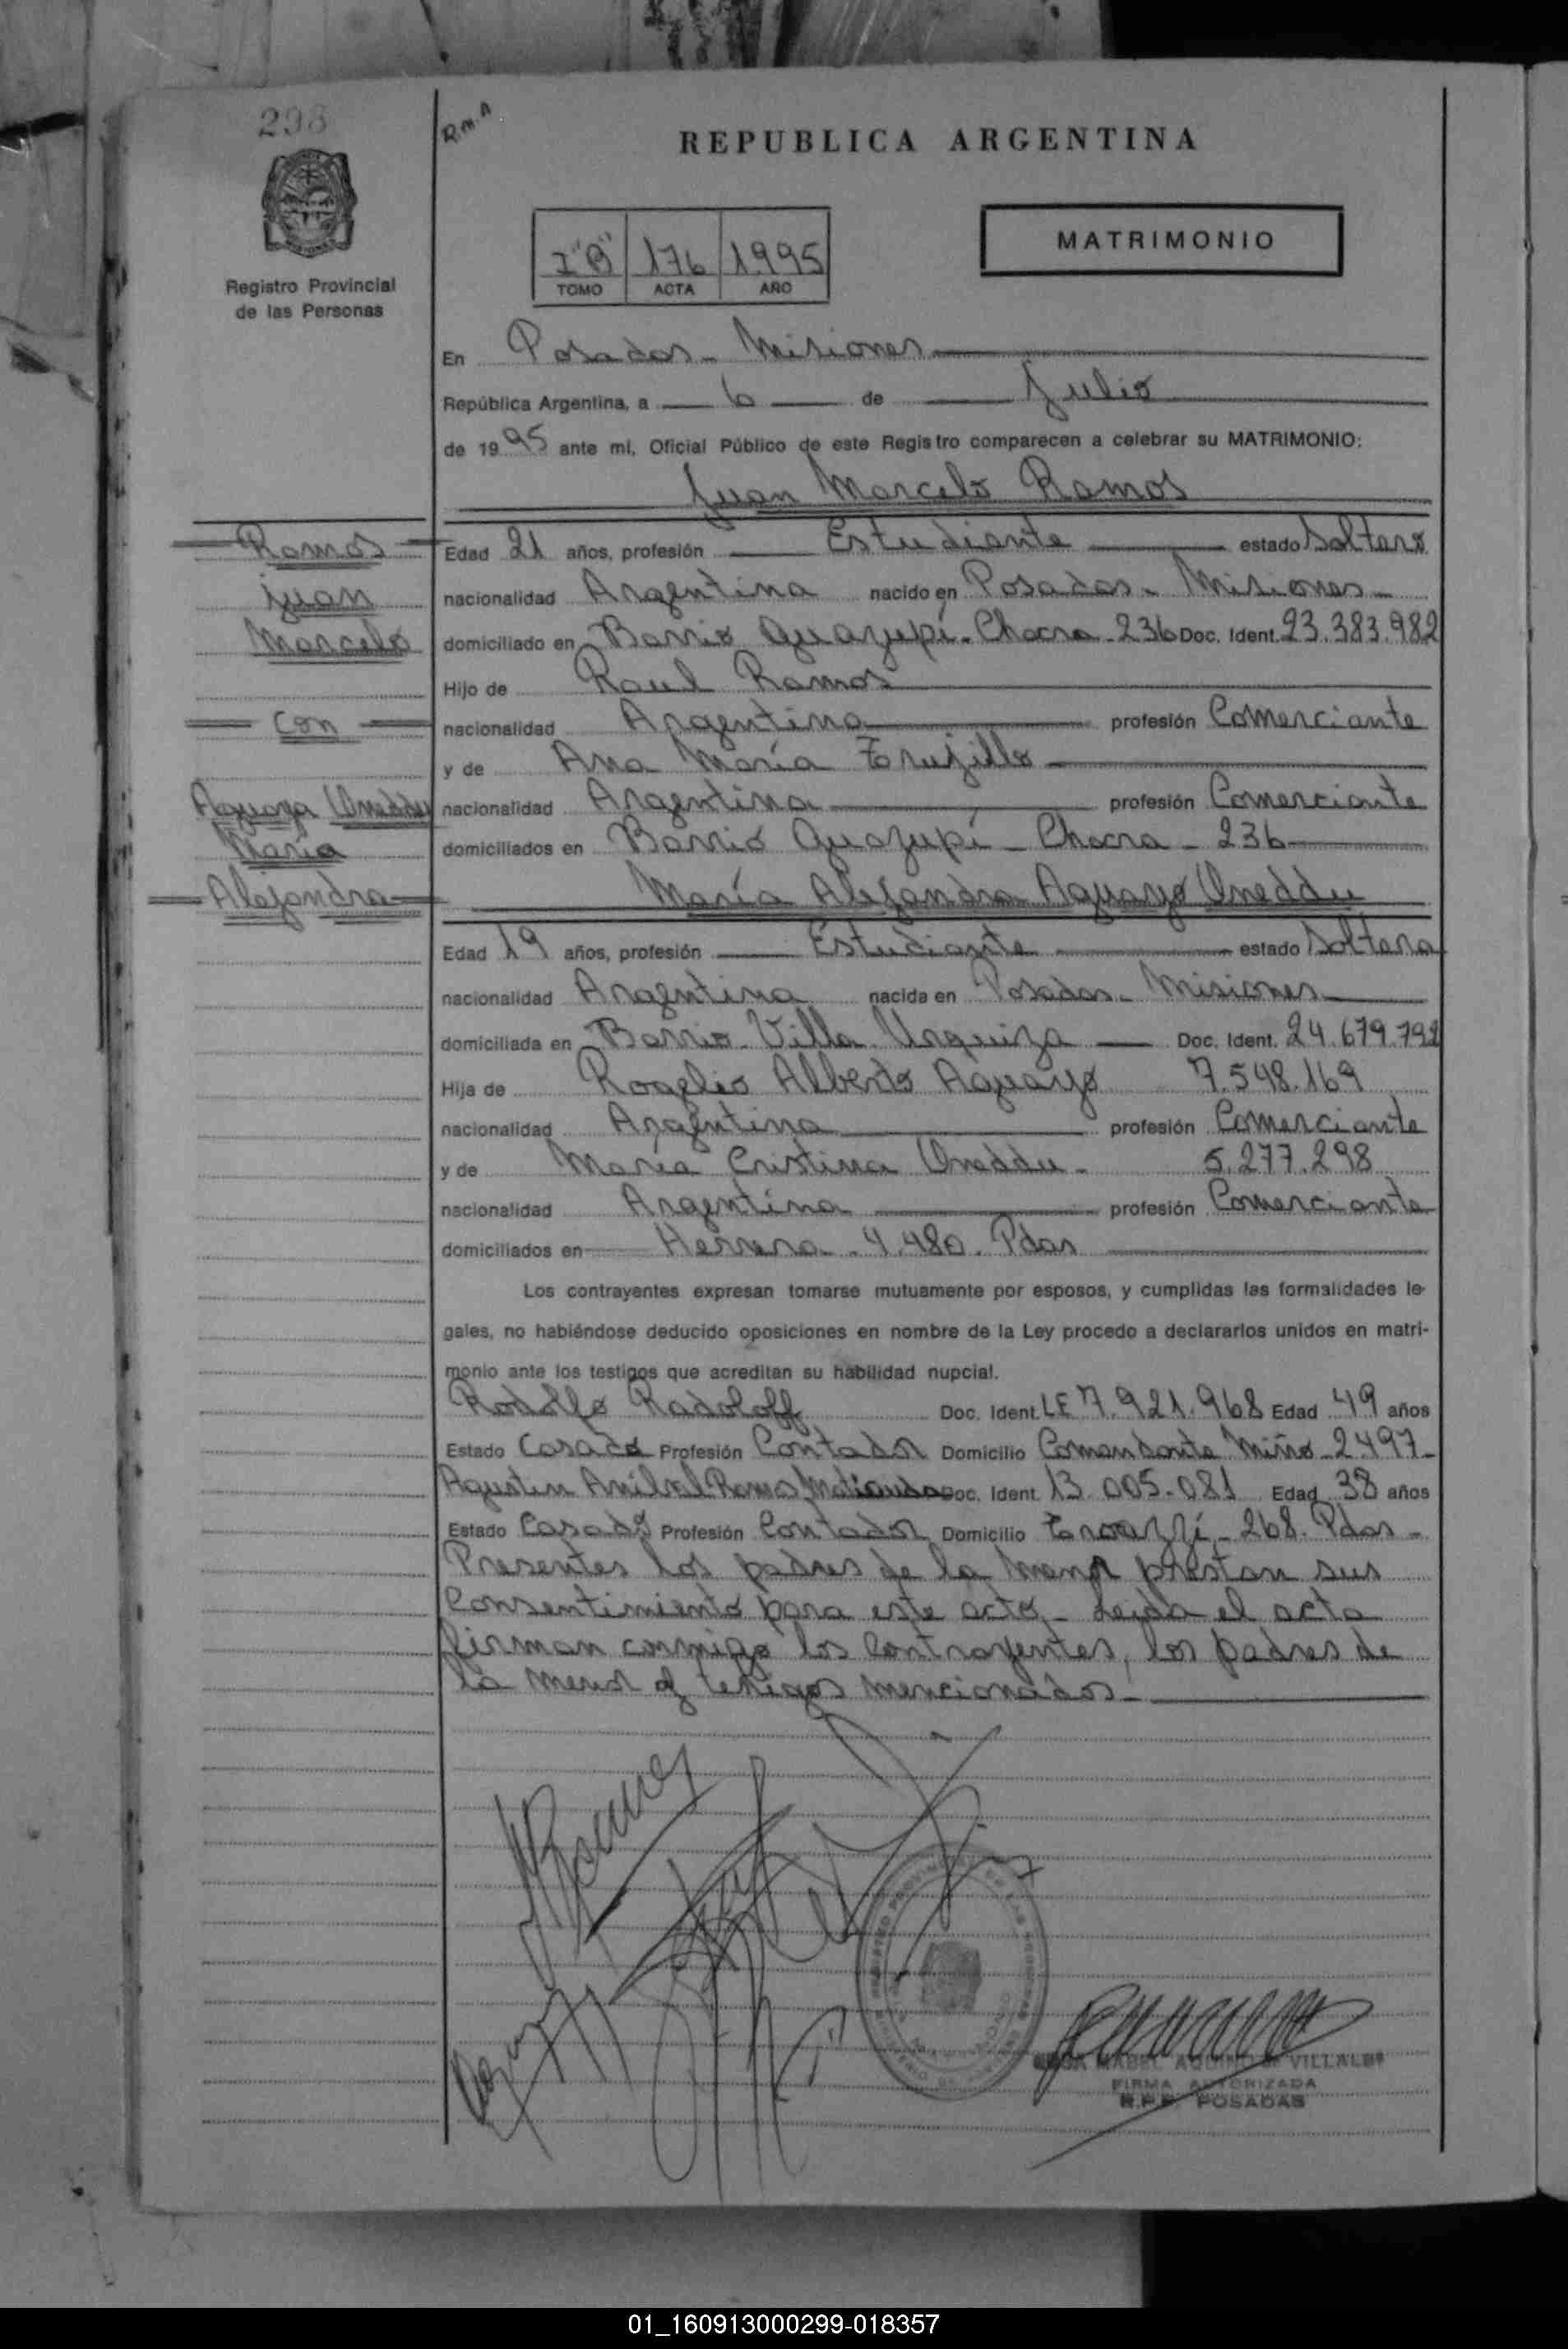 298
R.M.A
REPUBLICA ARGENTINA
MATRIMONIO
I"B" 176 1995
TOMO ACTA AÑO
Registro Provincial
de las Personas
En Posadas - Misiones
República Argentina, a 6 de Julio
de 1995 ante mí, Oficial Público de este Registro comparecen a celebrar su MATRIMONIO:
Juan Marcelo Ramos
Ramos
Juan
Marcelo
con
Aguayo Oneddu
María
Alejandra
Edad 21 años, profesión Estudiante estado Soltero
nacionalidad Argentina nacido en Posadas - Misiones -
domiciliado en Barrio Guazupi - Chacra - 236 Doc. Ident. 23.383.982
Hijo de Raul Ramos
nacionalidad Argentina profesión Comerciante
y de Ana María Trujillo
nacionalidad Argentina profesión Comerciante
domiciliados en Barrio Guazupí - Chacra - 236
María Alejandra Aguayo Oneddu
Edad 19 años, profesión Estudiante estado Soltera
nacionalidad Argentina nacida en Posadas - Misiones
domiciliada en Barrio - Villa Urquiza Doc. Ident. 24.679.792
Hija de Rogelio Alberto Aguayo 7.548.169
nacionalidad Argentina profesión Comerciante
y de María Cristina Oneddu - 5.277.298
nacionalidad Argentina profesión Comerciante
domiciliados en Herrera - 4.480. Pdas
Los contrayentes expresan tomarse mutuamente por esposos, y cumplidas las formalidades le-
gales, no habiéndose deducido oposiciones en nombre de la Ley procedo a declararlos unidos en matri-
monio ante los testigos que acreditan su habilidad nupcial.
Rodolfo Radoloff Doc. Ident. LE 7.921.968 Edad 49 años
Estado Casado Profesión Contador Domicilio Comandante Miño - 2497 -
Agustin Anibal Ramos Doc. Ident. 13.005.081 Edad 38 años
Estado Casado Profesión Contador Domicilio - 268. Pdas -
Presentes los padres de la menor prestan sus
Consentimiento para este acto - Leida el acta
firman conmigo los Contrayentes, los padres de
la menor y testigos mencionados -
MABEL AQUINO de VILLALBA
FIRMA AUTORIZADA
R.P.P. POSADAS
01_160913000299-018357